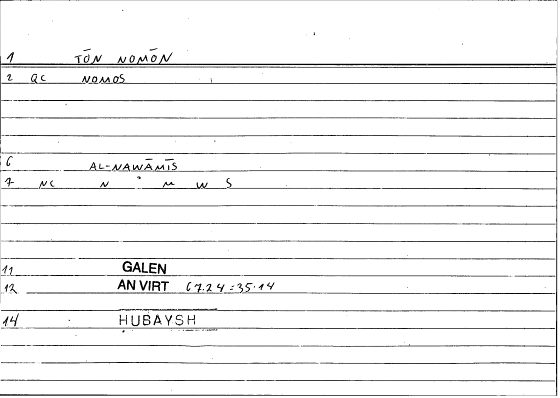 1 TŌN NOMŌN
2 QC NOMOS
6 AL-NAWĀMĪS
7 NC N ° M W S
11 GALEN
12 AN VIRT 67.24 = 35.14
14 HUBAYSH